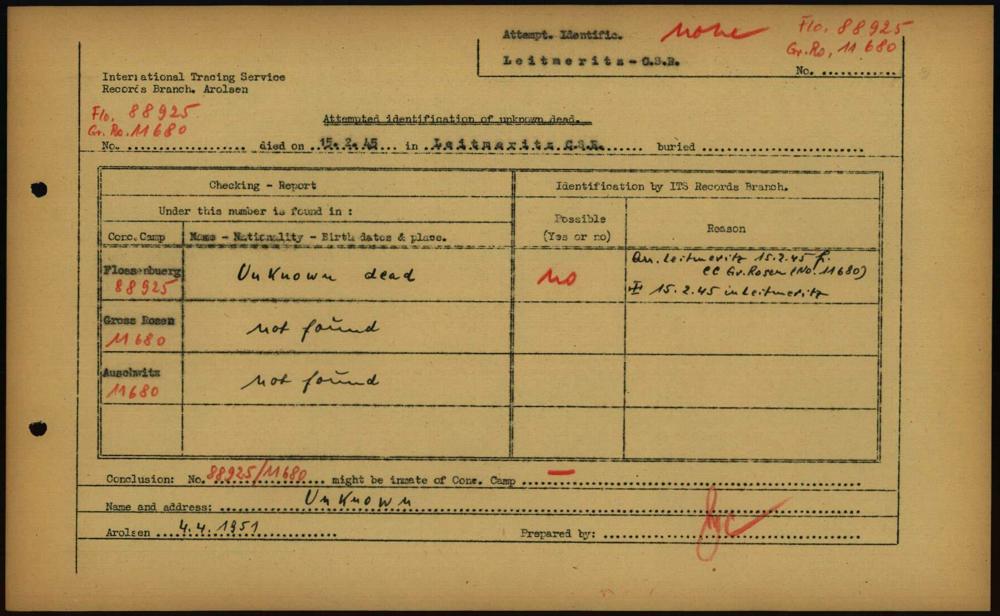 Attempt. Identific. none Flo. 88925
Gr.Ro, 11680
Leitmeritz - C.S.R.
No. ............
International Tracing Service
Records Branch. Arolsen
Flo. 88925
Gr. Ro. 11680
Attempted identification of unknown dead.
No. .................. died on ..15.2.45... in ..Leitmeritz C.S.R....... buried .........................
Checking - Report Identification by ITS Records Branch.
Under this number is found in : Possible
(Yes or no) Reason
Conc. Camp Name - Nationality - Birth dates & place.
Flossenbuerg
88925 Unknown dead no Arr. Leitmeritz 15.2.45 f.
CC Gr. Rosen (No. 11680)
15.2.45 in Leitmeritz
Gross Rosen
11680 not found
Auschwitz
11680 not found
Conclusion: No. 88925/11680 .... might be inmate of Conc. Camp ....–....
Name and address: .......... Unknown ..........
Arolsen ...4.4.1951.................... Prepared by: ..............................